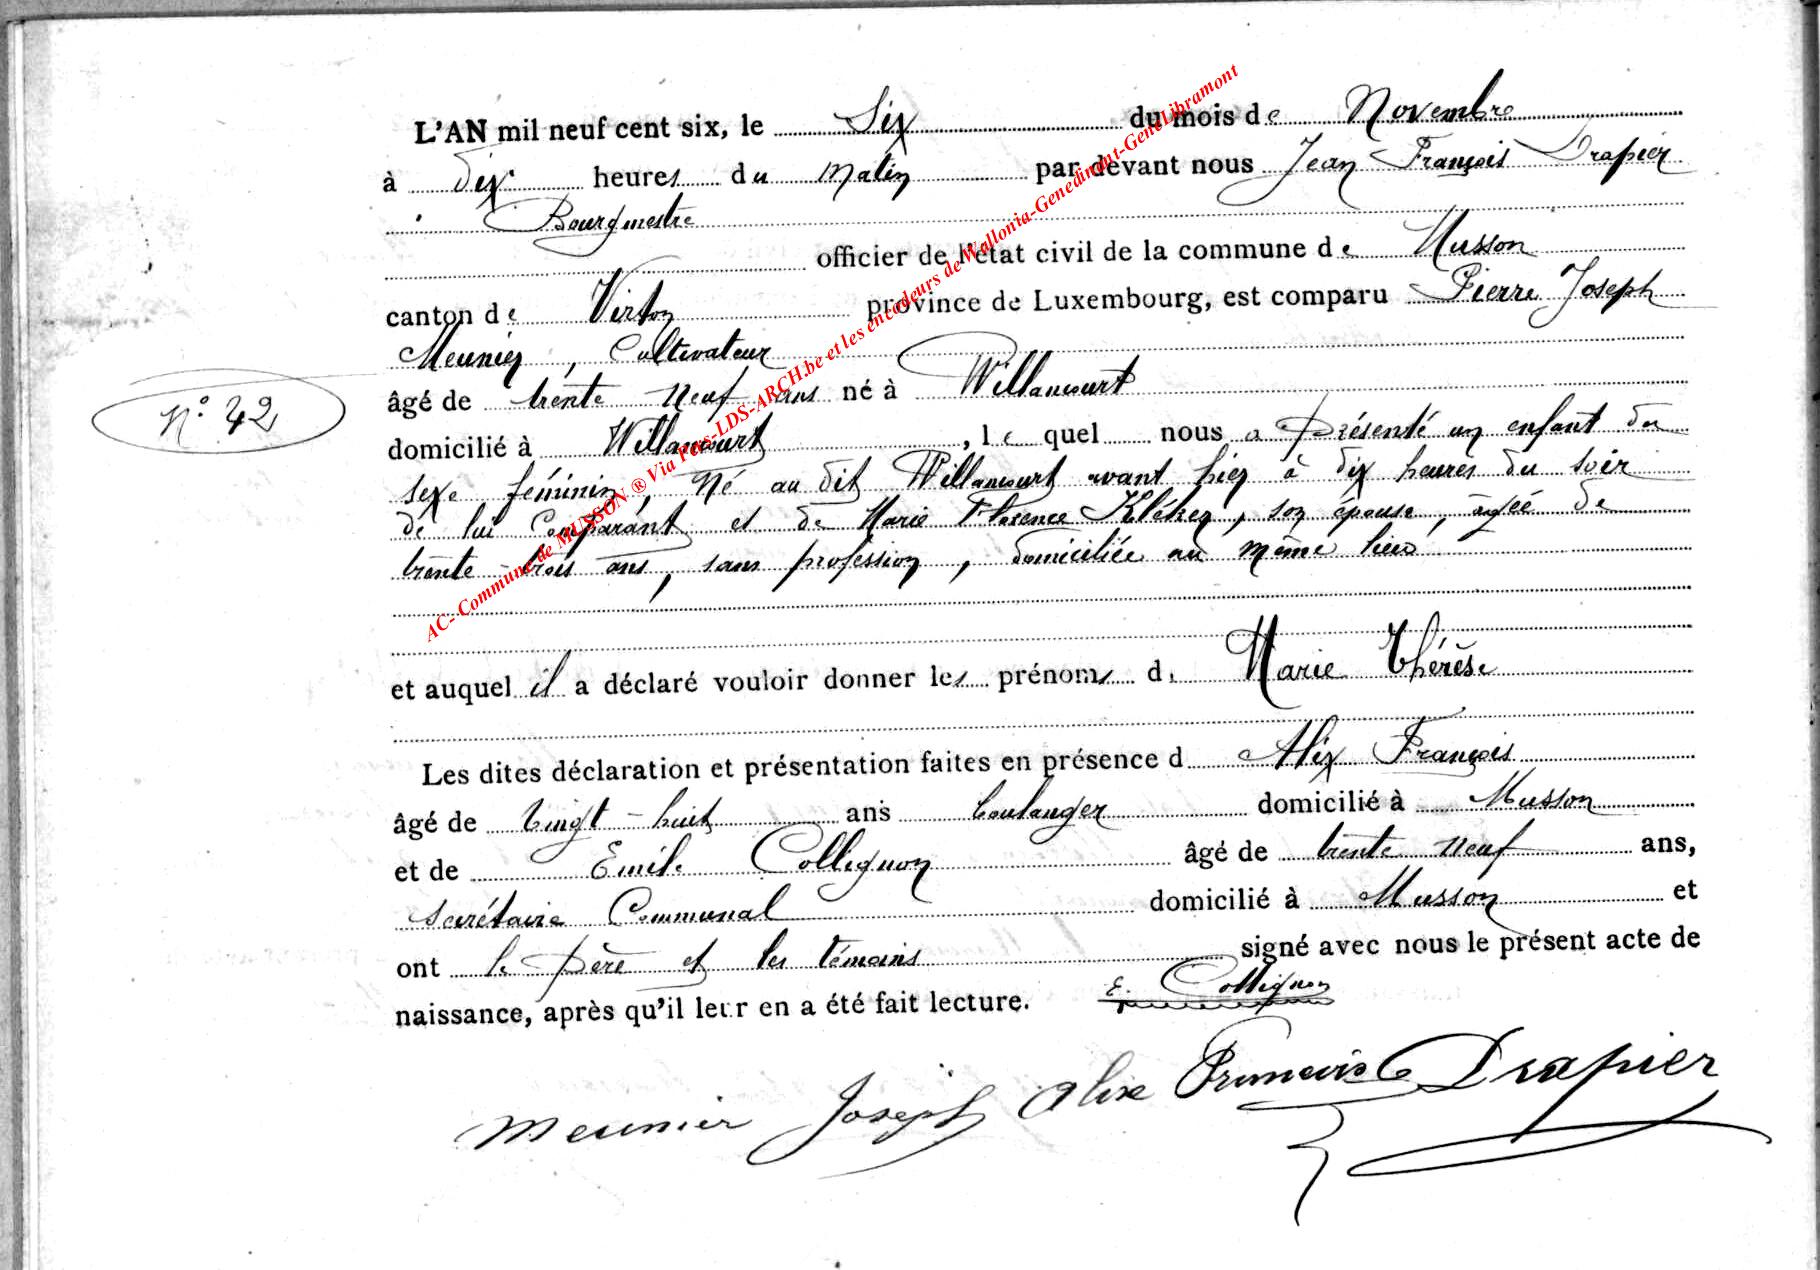 L'AN mil neuf cent six, le Six du mois de Novembre
à dix heures du matin par devant nous Jean François Drapier
Bourgmestre
officier de l'état civil de la commune de Musson
canton de Virton province de Luxembourg, est comparu Pierre Joseph
Meunier, Cultivateur
âgé de trente neuf ans né à Willancourt
N° 42
domicilié à Willancourt, lequel nous a présenté un enfant du
sexe féminin, Né au dit Willancourt avant hier à dix heures du soir
de lui Comparant et de Marie Florence, son épouse, âgée de
trente-trois ans, sans profession, domiciliée au même lieu
et auquel il a déclaré vouloir donner les prénoms d. Marie Thérèse
Les dites déclaration et présentation faites en présence d Alix François
âgé de Vingt-huit ans boulanger domicilié à Musson
et de Emile Collignon âgé de trente neuf ans,
secrétaire Communal domicilié à Musson et
ont le père et les témoins signé avec nous le présent acte de
naissance, après qu'il leur en a été fait lecture. E. Collignon
Meunier Joseph Alix François Drapier
AC- Commune de MUSSON ® Via Fers-LDS-ARCH.be et les encodeurs de Wallonia-Genedinant-GeneLibramont